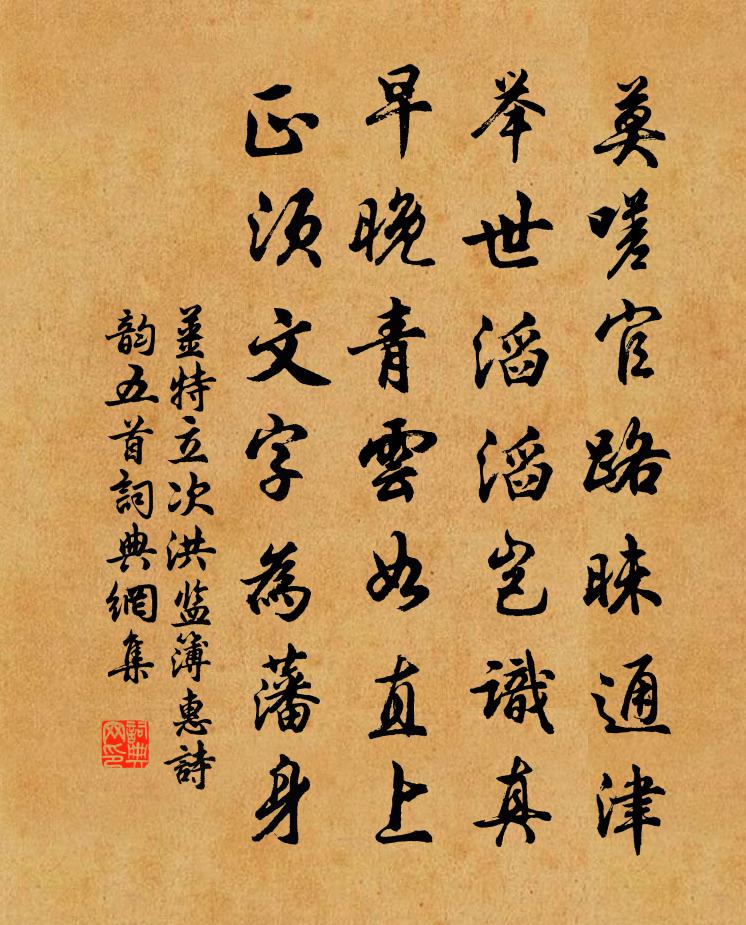 莫嗟官路昧通津
举世滔滔岂識真
早晚青雲如直上
正須文字為藩身
姜特立次洪监簿惠詩
韵五首詞典網集
詞典网印